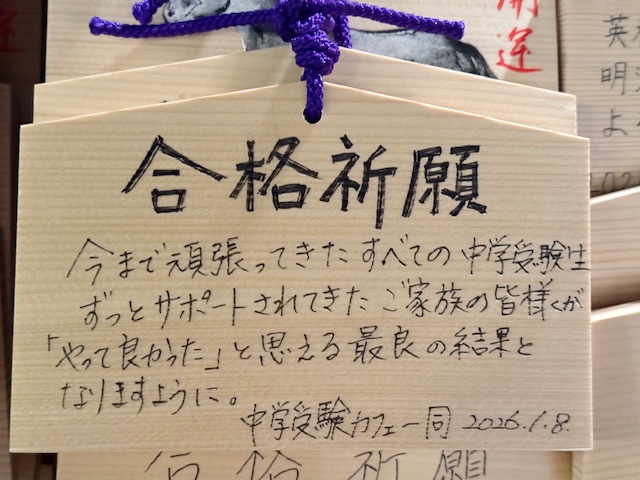 開運
合格祈願
今まで頑張ってきたすべての中学受験生
ずっとサポートされてきたご家族の皆様が
「やって良かった」と思える最良の結果と
なりますように。
中学受験カフェ一同 2026.1.8.
合格祈願
英
明
よ